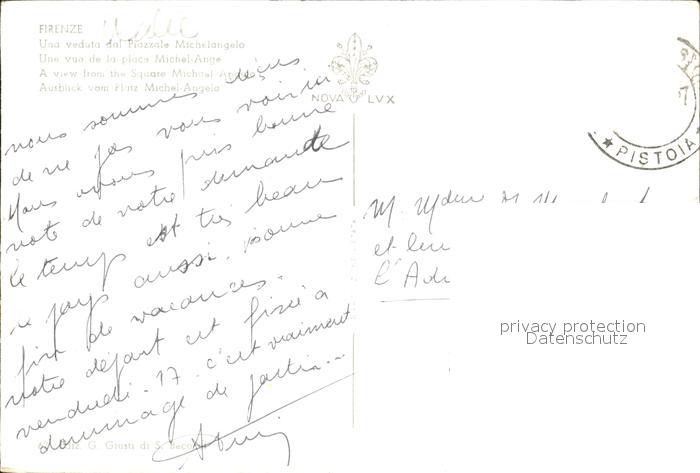 FIRENZE
Italie
Una veduta dal Piazzale Michelangelo
Une vue de la place Michel-Ange
A view from the Square Michael Angelo
Ausblick vom Platz Michel-Angelo
NOVA LVX
PISTOIA
nous sommes déçus
de ne pas vous voir ici
Nous avons pris bonne
note de votre demande
le temps est très beau
le pays aussi. bonne
fin de vacances.
notre départ est fixé à
vendredi. 17. c'est vraiment
dommage de partir...
G. Giusti di S. Becocci
M. Mdme
et leur
l'Adr
privacy protection
Datenschutz